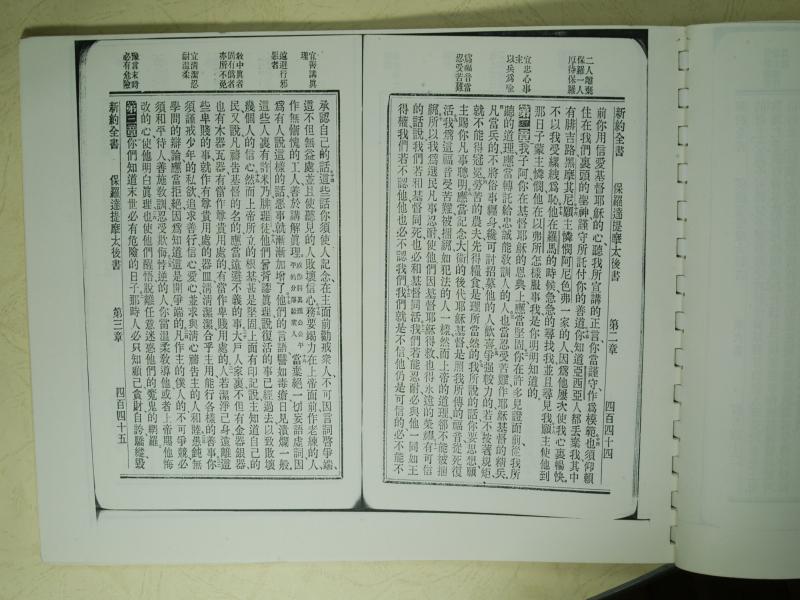 新約全書　保羅達提摩太後書　第二章　四百四十四
二人離棄
保羅一人
厚待保羅
宜忠心事
以兵為喻
為福音當
忍受苦難
前你用信愛基督耶穌的心聽我所宣講的正言你當謹守作為模範也須仰賴
住在我們裏頭的聖神謹守所託付你的善道你知道亞西亞人都丟棄我其中
有腓吉路黑摩其尼願主憐憫阿尼色弗一家的人因為他屢次使我心裏暢快
不以我受縲絏為恥他在羅馬的時候急急的尋找我並且尋見我願主使他到
那日子蒙主憐憫他在以弗所怎樣服事我是你明明知道的
第二章我子阿你在基督耶穌的恩典上應當堅固你在許多見證面前從我所
聽的道理應當轉託給忠誠能敎訓人的人也當忍受苦難作耶穌基督的精兵
凡當兵的不將俗事纏身纔可討招募他的人歡喜爭强較力的若不按著規矩
就不能得冠冕勞苦的農夫先得糧食是理所當然的我所說的話你要思想願
主賜你凡事聰明應當記念大衞的後代耶穌基督是照我所傳的福音從死復
活我為這福音受苦難被捆綁如犯法的人一樣然而上帝的道理卻不能被捆
綁所以我為選民凡事忍耐使他們因基督耶穌得救也得永遠的榮耀有可信
的話說我們若和基督同死也必和基督同活我們若能忍耐必與他一同如王
得權我們若不認他他也必不認我們我們就是不信他仍是可信的必不能不
宜善講眞
理
遠避行邪
惡者
敎中眞者
固有偽者
亦所不免
宜清潔忍
耐溫柔
豫言末時
必有危險
承認自己的話這些話你須使人記念在主面前勸戒衆人不可因言詞啓爭端
這不但無益處並且使聽見的人敗壞信心務要竭力在上帝面前作老練的人
作無慚愧的工人善於講解眞理當棄絕一切妄語虛詞因
為有人說這樣的話惡事就漸漸加增了他們的言語譬如毒瘡日見潰爛一般
這些人裏有許米乃腓理徒他們背謬眞理說復活的事已經過去以致敗壞
幾個人的信心然而上帝所立的根基甚是堅固上面有印記說主知道自己的
民又說凡禱告基督的名的應當遠避不義的事大戶人家裏不但有金器銀器
也有木器瓦器有當作尊貴用處的有當作卑賤用處的人若潔淨己身遠離這
些卑賤的事就作有尊貴用處的器皿清清潔潔合乎主用能行各樣的善事你
須謹戒少年的私欲追求善行信心愛心並求與清心禱告主的人和睦愚鈍無
學問的辯論應當拒絕因為知道這是開爭端的凡作主的僕人的不可爭競必
須和平待人善施敎訓忍受欺侮悖逆的人你當溫柔敎導他或者上帝賜他悔
改的心使他明白眞理也使他們醒悟脫離任意迷惑他們的魔鬼的網羅
第三章你們知道末世必有危險的日子那時人必只知顧己貪財自誇驕縱毀
新約全書　保羅達提摩太後書　第三章　四百四十五